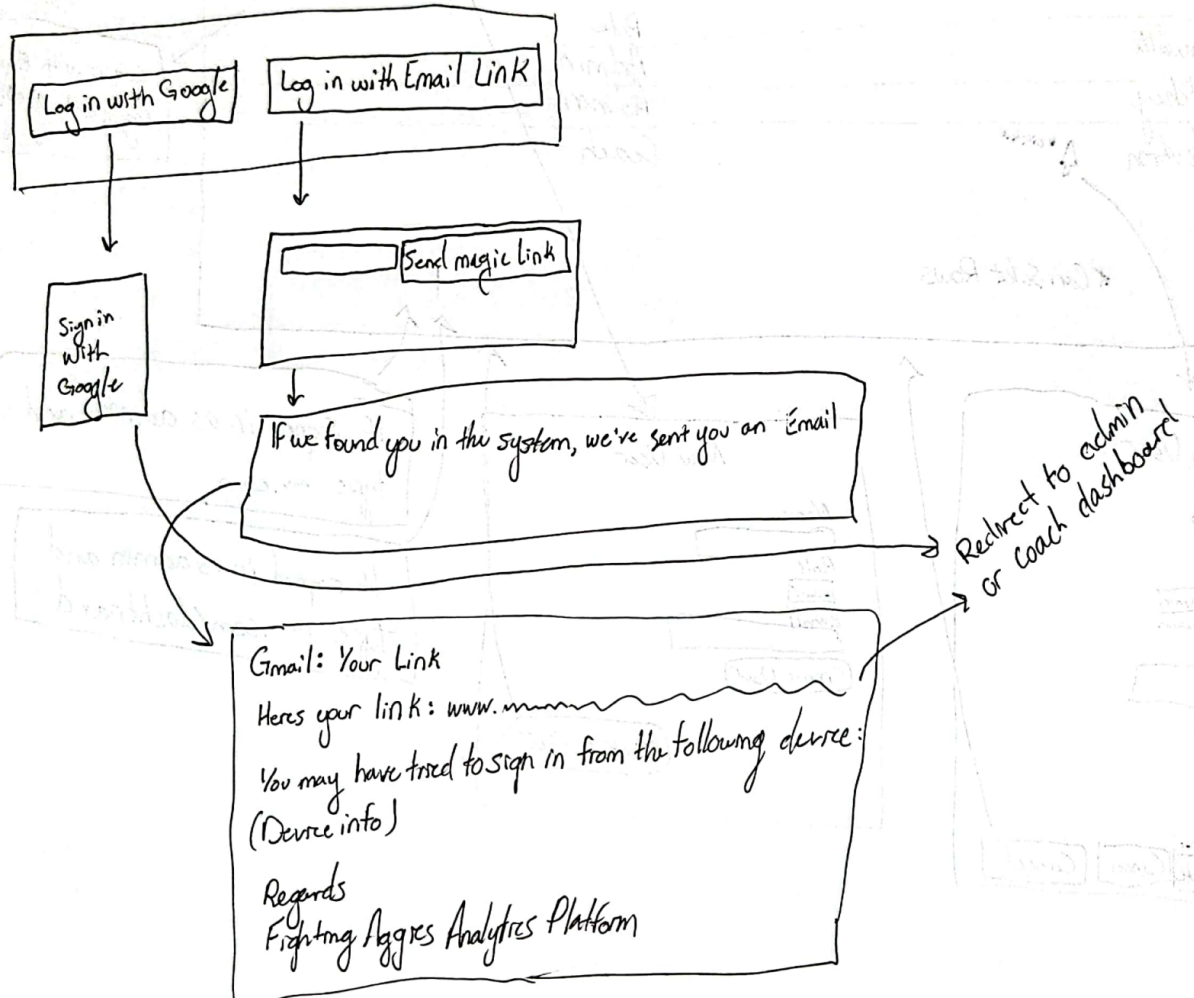 Log in with Google
Log in with Email Link
Send magic Link
Sign in
with
Google
If we found you in the system, we've sent you an Email
Redirect to admin
or coach dashboard
Gmail: Your Link
Heres your link: www.
You may have tried to sign in from the following device:
(Device info)
Regards
Fighting Aggies Analytics Platform